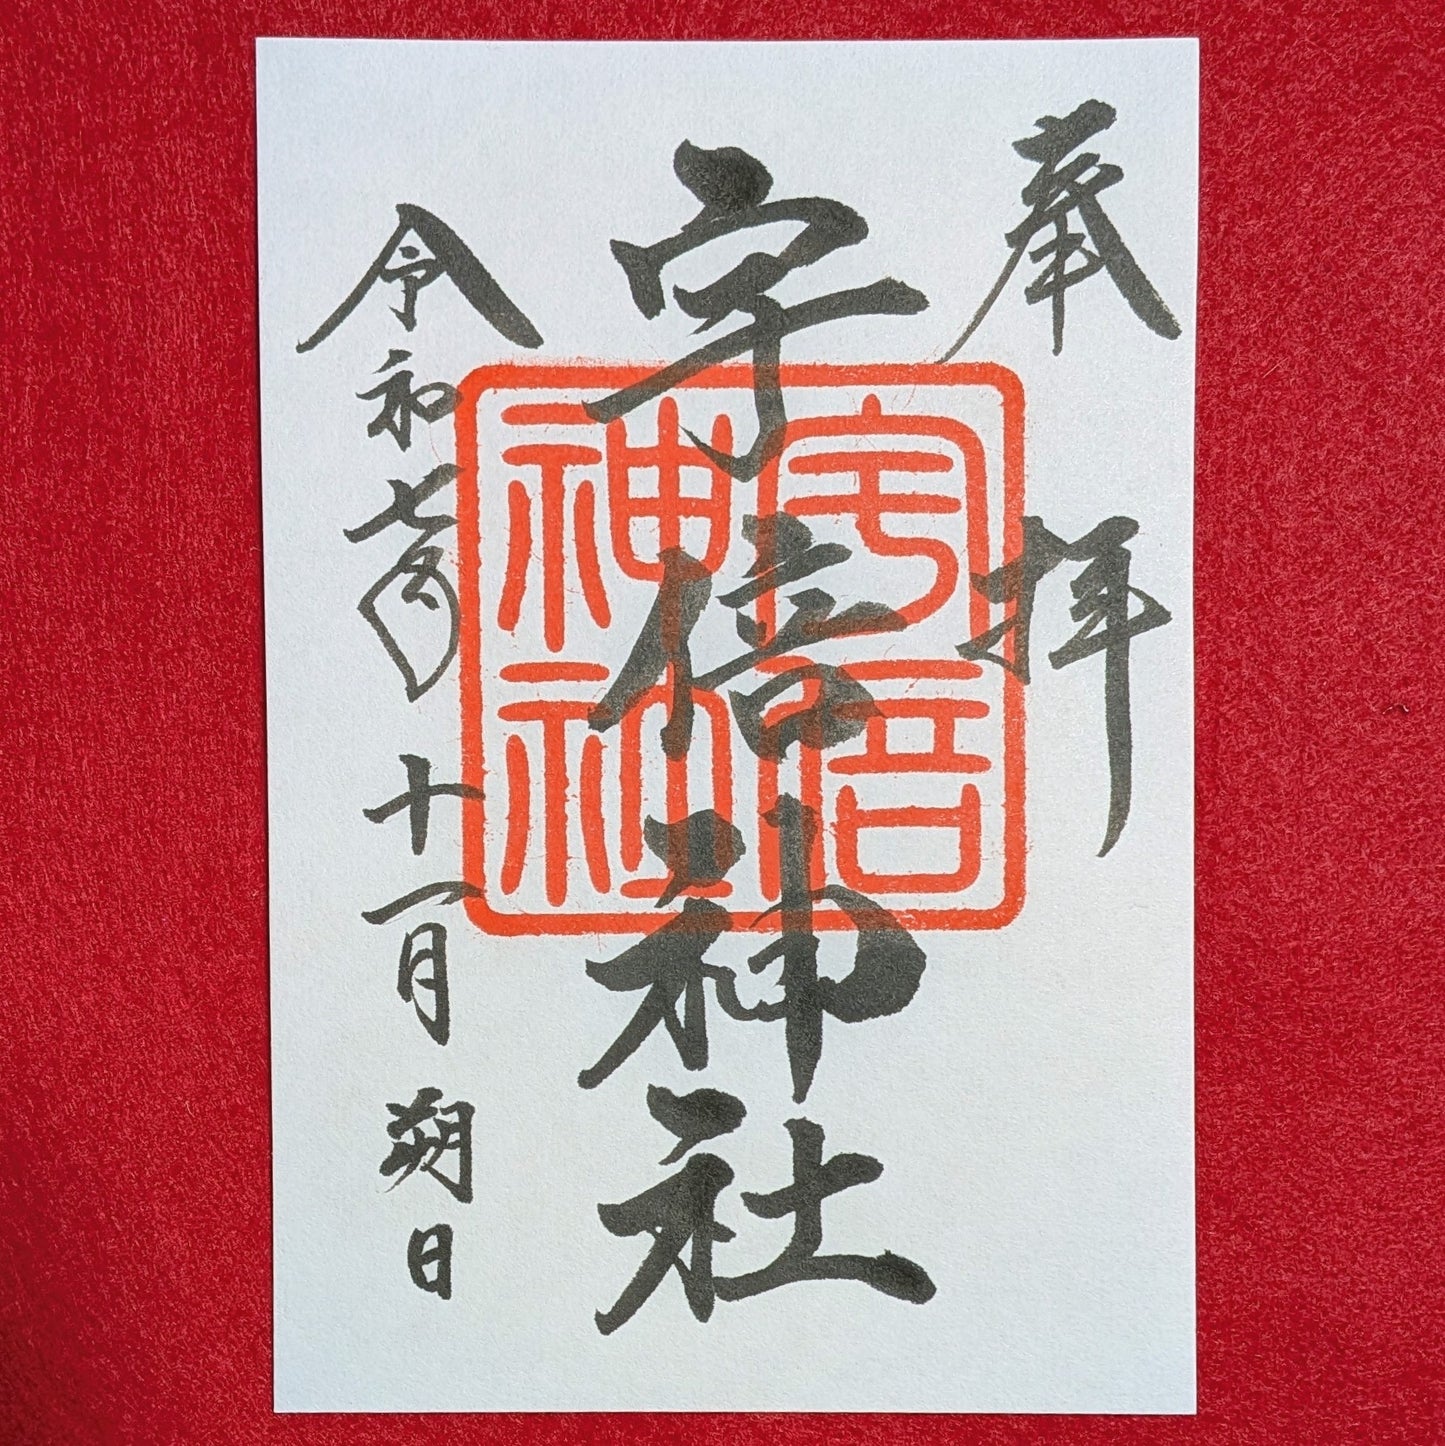 奉拝
宇倍神社
令和七年十一月朔日
宇倍
神社